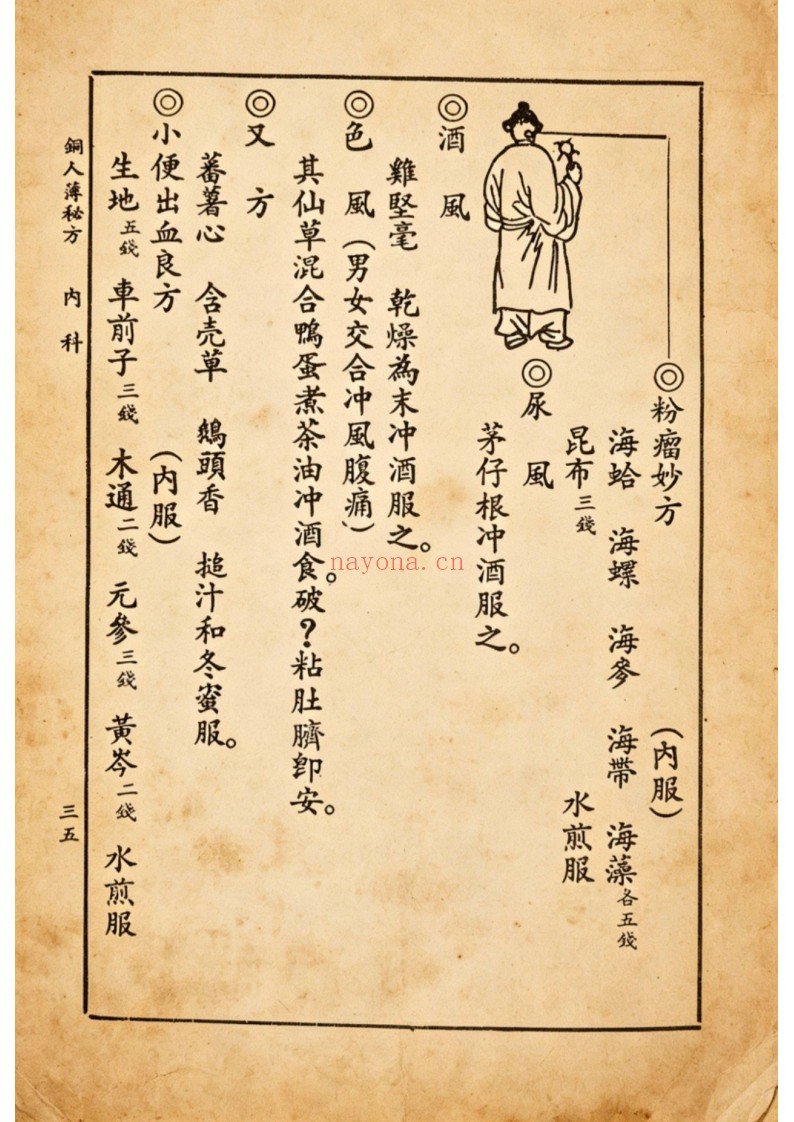 ◎粉瘤妙方 (內服)
海蛤 海螺 海參 海帶 海藻各五錢
昆布三錢 水煎服
◎尿風
茅仔根冲酒服之。
◎酒風
雞堅毫 乾燥為末冲酒服之。
◎色風(男女交合冲風腹痛)
其仙草混合鴨蛋煮茶油冲酒食。破?粘肚臍卽安。
◎又方
蕃薯心 含壳草 鷄頭香 搥汁和冬蜜服。
◎小便出血良方 (內服)
生地五錢 車前子三錢 木通二錢 元參三錢 黃岑二錢 水煎服
銅人簿秘方 內科 三五
nayona.cn